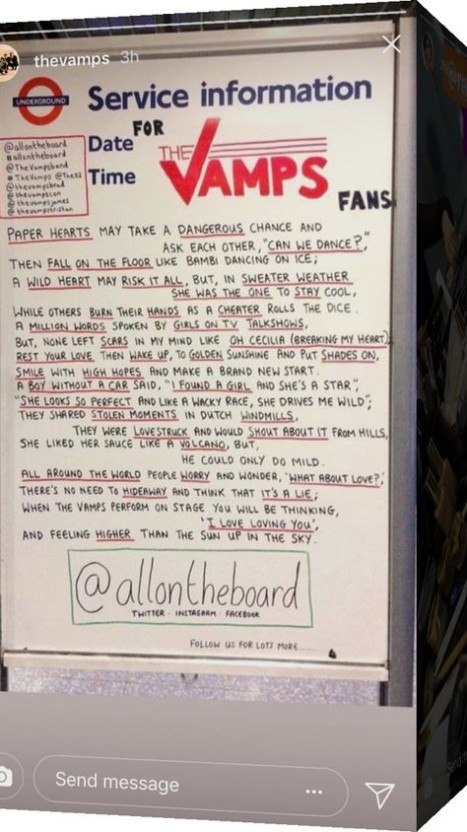 thevamps 3h
UNDERGROUND
Service information
FOR
Date
Time
THE VAMPS
FANS
@allontheboard
#allontheboard
@TheVampsband
#TheVamps @TheO2
@thevampsbrad
@thevampscon
@thevampsjames
@thevampstristan
PAPER HEARTS MAY TAKE A DANGEROUS CHANCE AND
ASK EACH OTHER, "CAN WE DANCE?",
THEN FALL ON THE FLOOR LIKE BAMBI DANCING ON ICE;
A WILD HEART MAY RISK IT ALL, BUT, IN SWEATER WEATHER
SHE WAS THE ONE TO STAY COOL,
WHILE OTHERS BURN THEIR HANDS AS A CHEATER ROLLS THE DICE.
A MILLION WORDS SPOKEN BY GIRLS ON TV TALKSHOWS,
BUT, NONE LEFT SCARS IN MY MIND LIKE OH CECILIA (BREAKING MY HEART).
REST YOUR LOVE THEN WAKE UP, TO GOLDEN SUNSHINE AND PUT SHADES ON,
SMILE WITH HIGH HOPES AND MAKE A BRAND NEW START.
A BOY WITHOUT A CAR SAID, "I FOUND A GIRL AND SHE'S A STAR",
"SHE LOOKS SO PERFECT AND LIKE A WACKY RACE, SHE DRIVES ME WILD";
THEY SHARED STOLEN MOMENTS IN DUTCH WINDMILLS,
THEY WERE LOVESTRUCK AND WOULD SHOUT ABOUT IT FROM HILLS,
SHE LIKED HER SAUCE LIKE A VOLCANO, BUT,
HE COULD ONLY DO MILD.
ALL AROUND THE WORLD PEOPLE WORRY AND WONDER, 'WHAT ABOUT LOVE?',
THERE'S NO NEED TO HIDEAWAY AND THINK THAT IT'S A LIE;
WHEN THE VAMPS PERFORM ON STAGE YOU WILL BE THINKING,
'I LOVE LOVING YOU',
AND FEELING HIGHER THAN THE SUN UP IN THE SKY.
@allontheboard
TWITTER · INSTAGRAM · FACEBOOK
FOLLOW US FOR LOTS MORE...
Send message